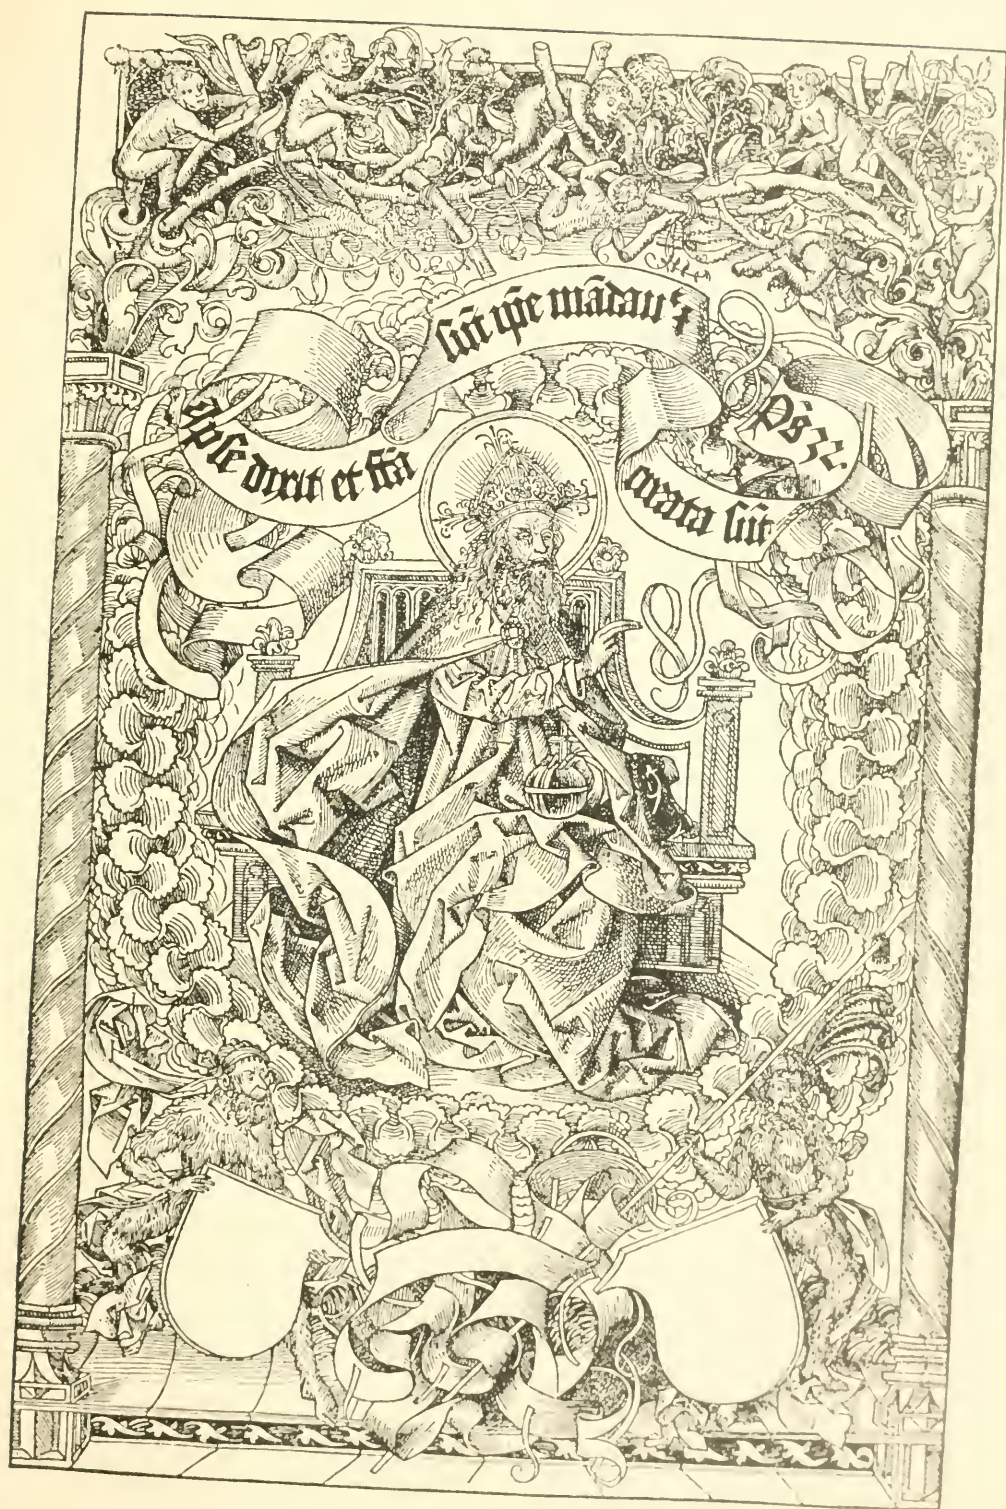 Ipse dixit et fc̄a
sūt ip̄e mādauꝫ
creata sūt
Ps 32.